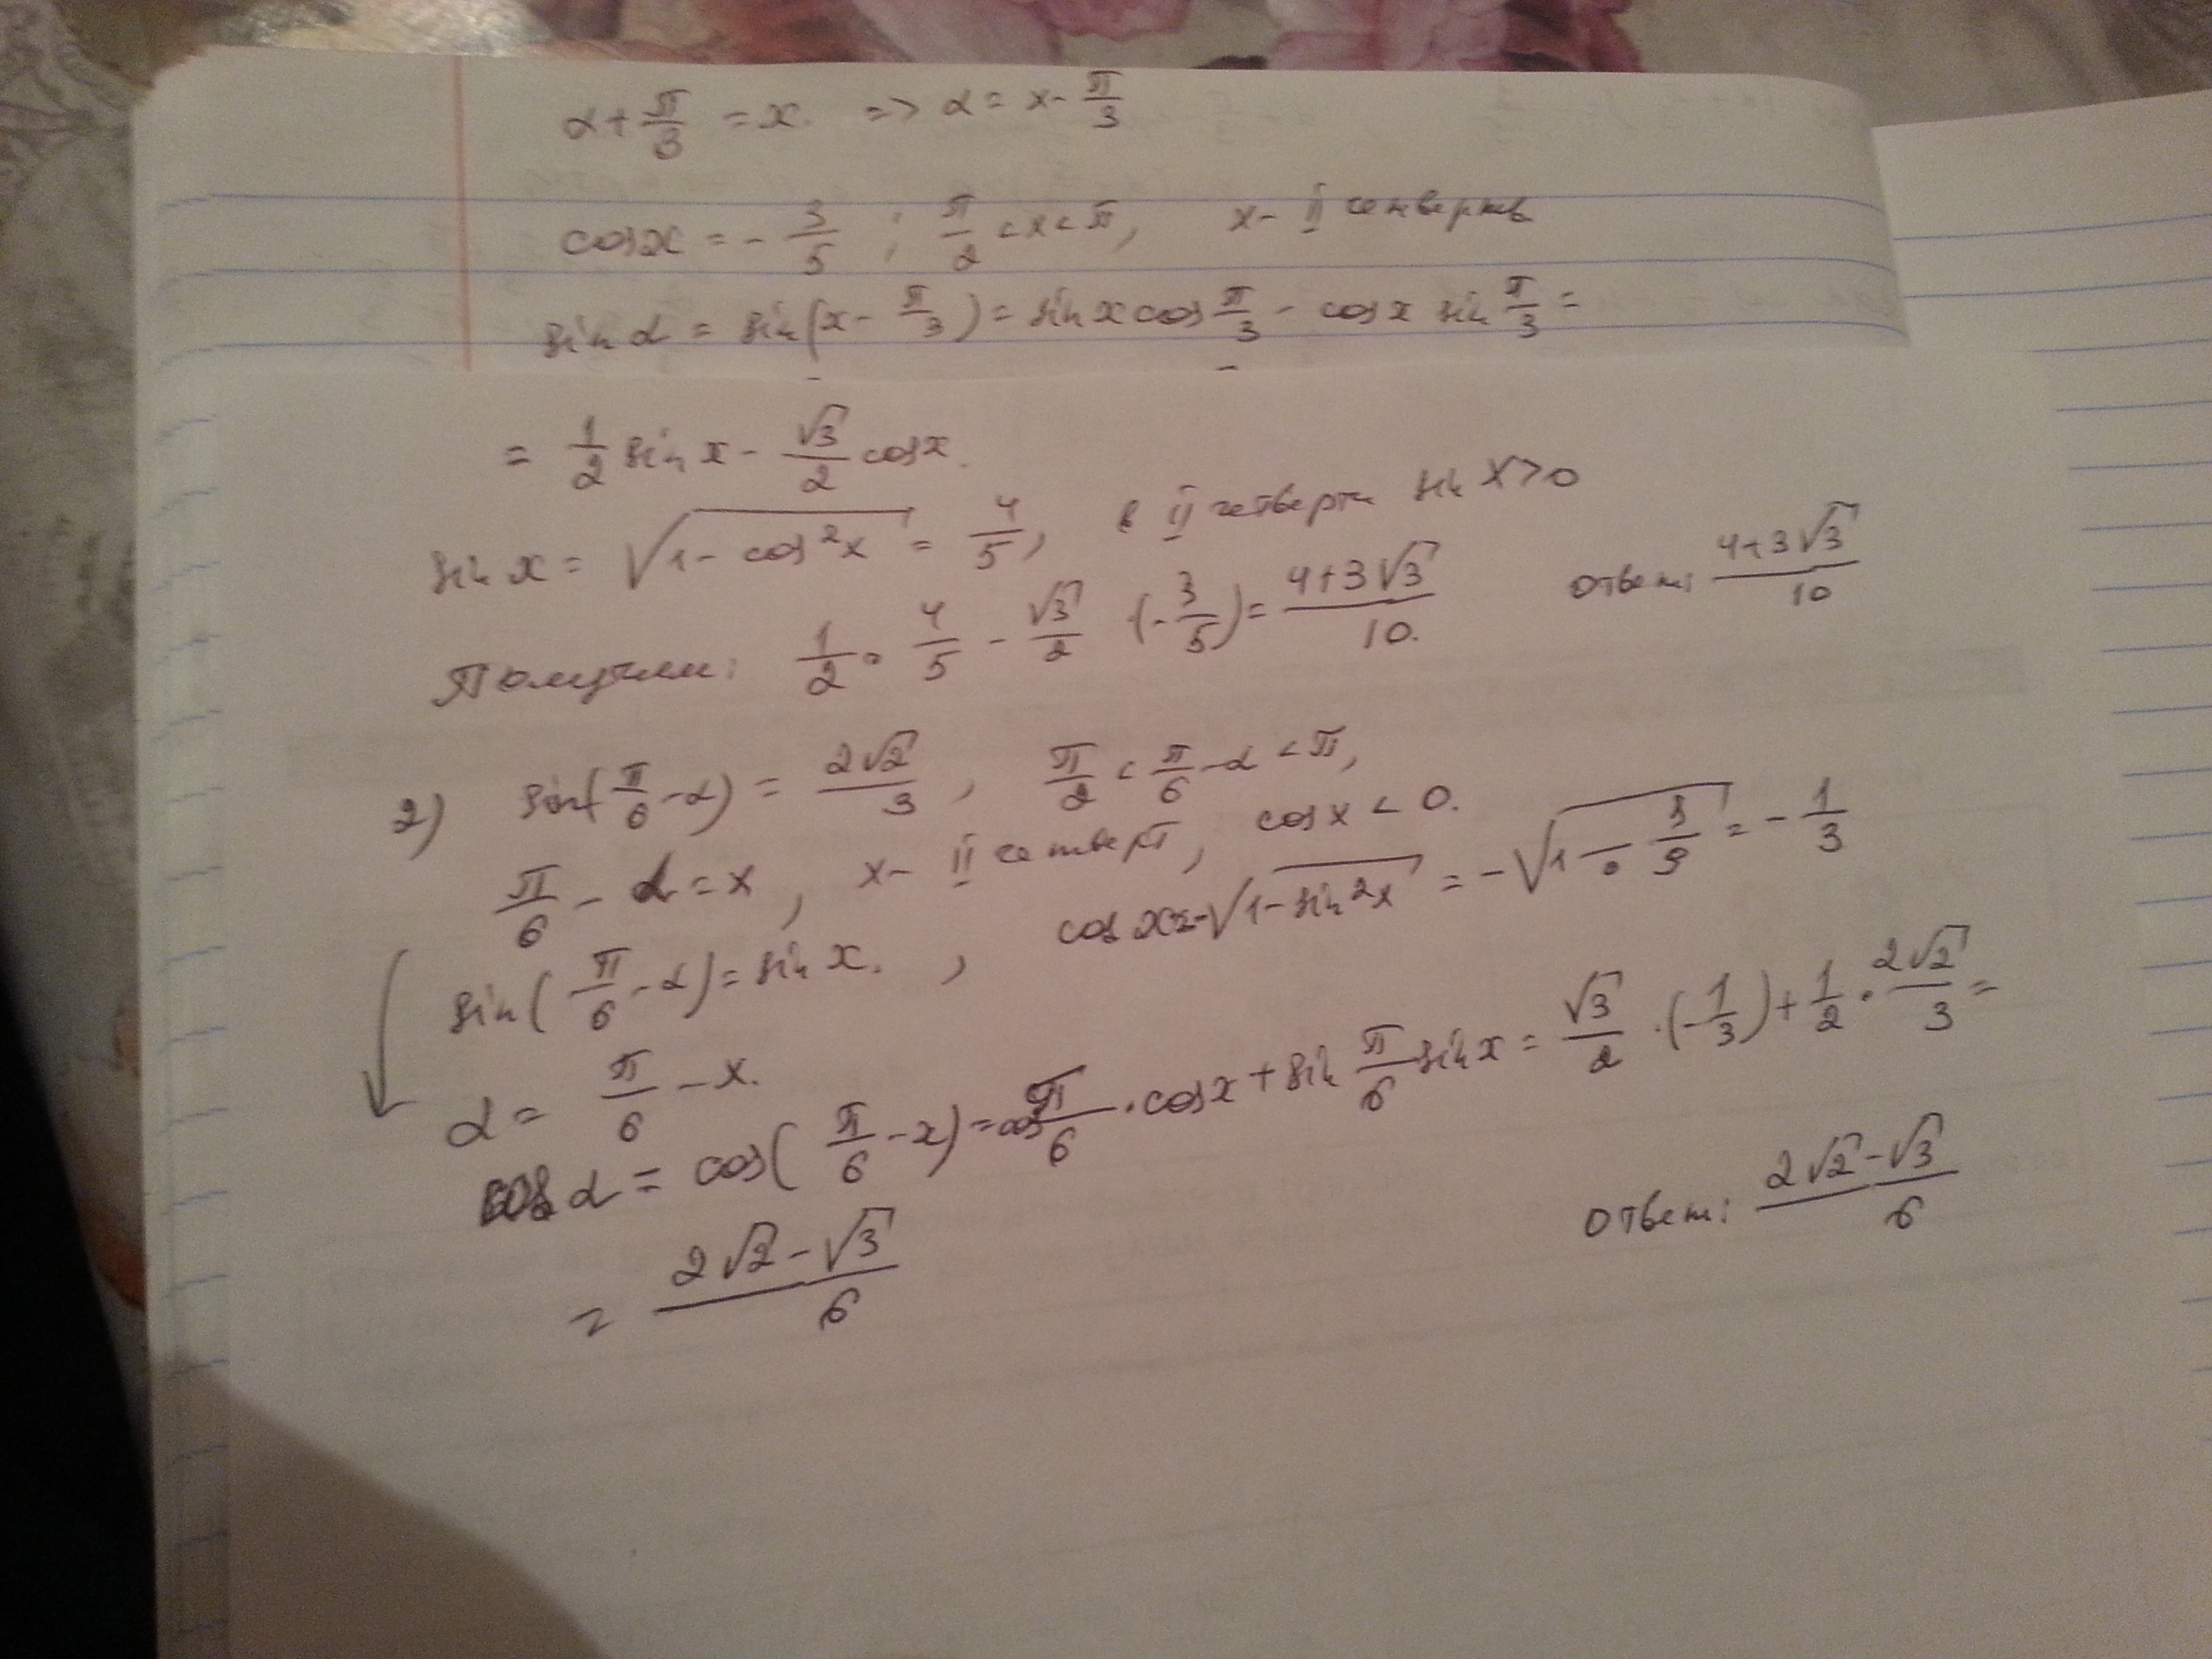 α + π/3 = x. => α = x - π/3
cos x = - 3/5 ; π/2 < x < π, x - II четверть
sin α = sin(x - π/3) = sin x cos π/3 - cos x sin π/3 =
= 1/2 sin x - √3/2 cos x.
sin x = √(1 - cos²x) = 4/5, в II четверти sin x > 0
Получили: 1/2 · 4/5 - √3/2 · (-3/5) = (4+3√3)/10. ответ: (4+3√3)/10
2) sin(π/6 - α) = 2√2/3, π/2 < π/6 - α < π,
π/6 - α = x, x - II четверт, cos x < 0.
sin(π/6 - α) = sin x. , cos x = -√(1 - sin²x) = -√(1 - 8/9) = - 1/3
α = π/6 - x.
cos α = cos(π/6 - x) = cos π/6 · cos x + sin π/6 sin x = √3/2 · (-1/3) + 1/2 · 2√2/3 =
= (2√2 - √3)/6 ответ: (2√2 - √3)/6